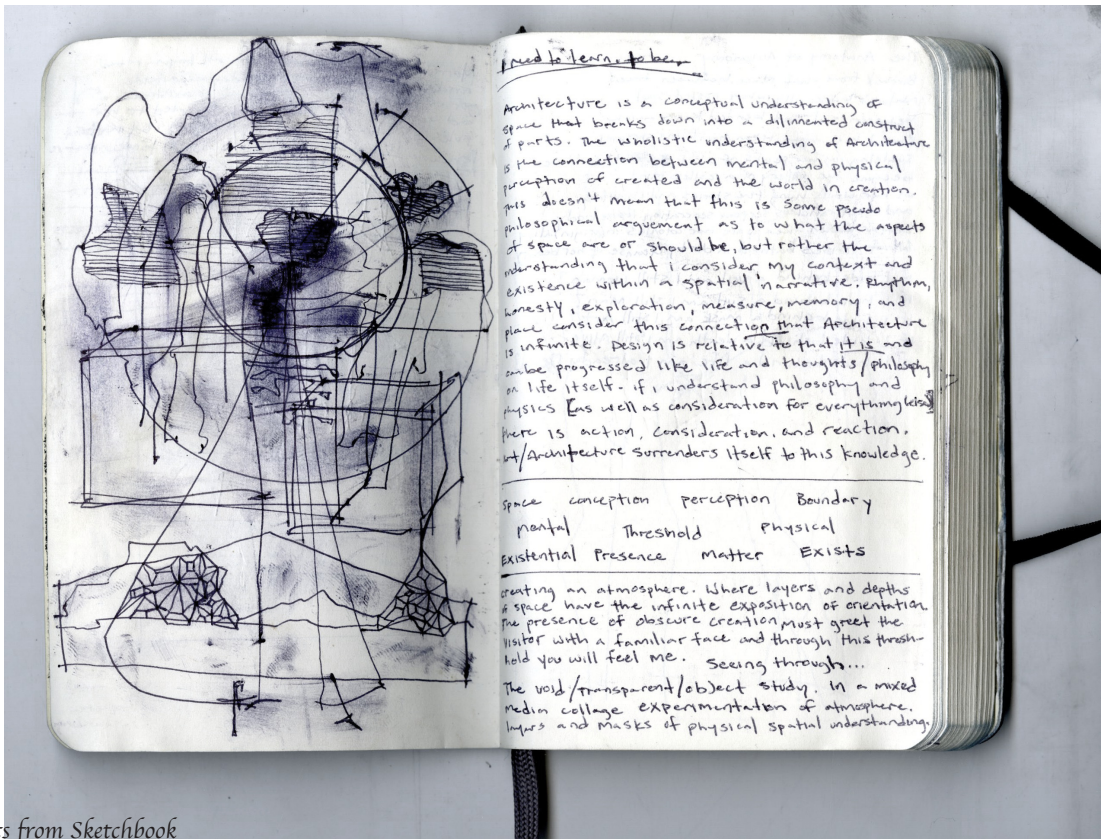 I need to learn, to be,
Architecture is a conceptual understanding of
space that breaks down into a dilinneated construct
of parts. The wholistic understanding of Architecture
is the connection between mental and physical
perception of created and the world in creation.
This doesn't mean that this is some pseudo
philosophical arguement as to what the aspects
of space are or should be, but rather the
understanding that i consider my context and
existence within a spatial narrative. Rhythm,
honesty, exploration, measure, memory, and
place consider this connection that Architecture
is infinite. Design is relative to that it is and
can be progressed like life and thoughts/philosophy
on life itself. if i understand philosophy and
physics [as well as consideration for everything else]
there is action, consideration, and reaction.
Art/Architecture surrenders itself to this knowledge.
Space conception perception Boundary
mental Threshold Physical
Existential Presence Matter Exists
creating an atmosphere. Where layers and depths
of space have the infinite exposition of orientation.
The presence of obscure creation must greet the
visitor with a familiar face and through this thresh-
hold you will feel me. Seeing through...
The void/transparent/object study. In a mixed
media collage experimentation of atmosphere.
layers and masks of physical spatial understanding.
from Sketchbook